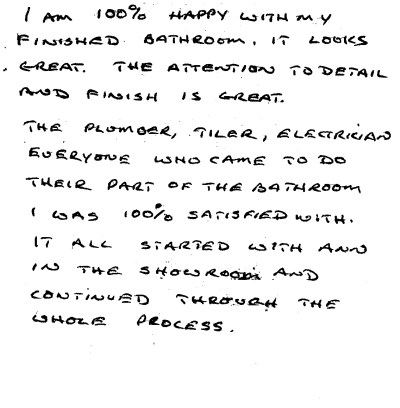 I AM 100% HAPPY WITH MY
FINISHED BATHROOM. IT LOOKS
GREAT. THE ATTENTION TO DETAIL
AND FINISH IS GREAT.
THE PLUMBER, TILER, ELECTRICIAN
EVERYONE WHO CAME TO DO
THEIR PART OF THE BATHROOM
I WAS 100% SATISFIED WITH.
IT ALL STARTED WITH ANN
IN THE SHOWROOM AND
CONTINUED THROUGH THE
WHOLE PROCESS.